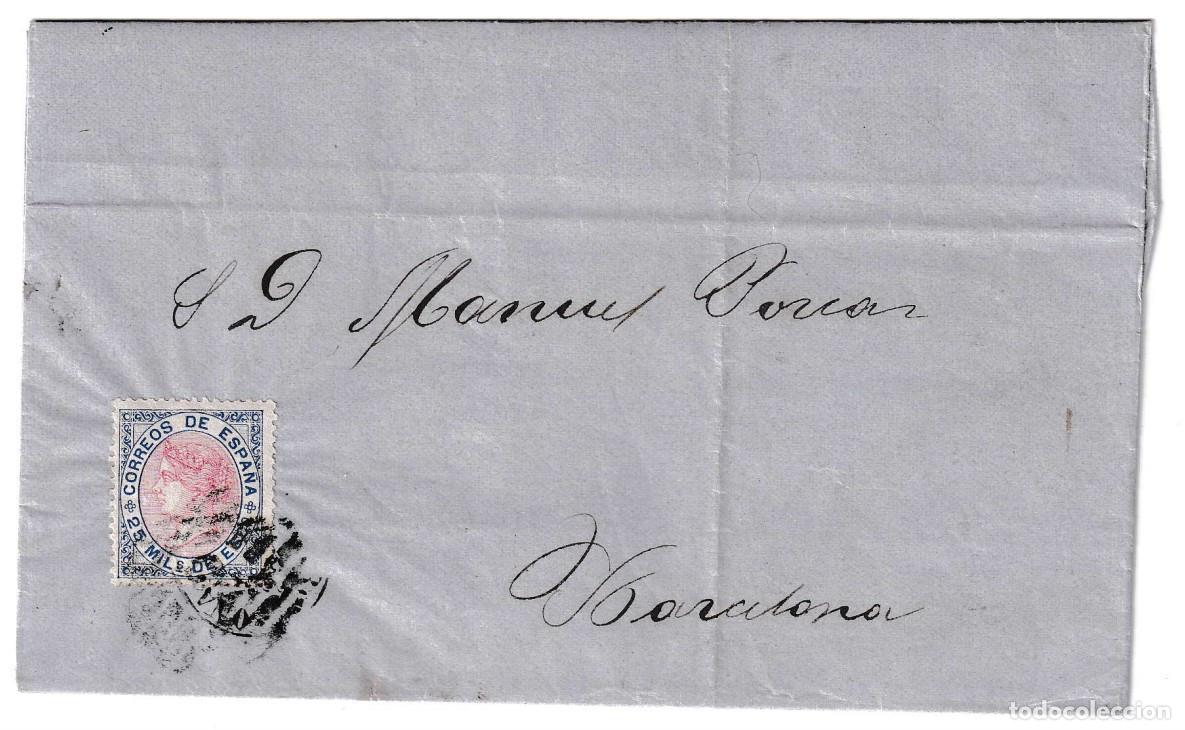 S D Manuel Porcar
Barcelona
CORREOS DE ESPAÑA
25 MILS DE E
todocoleccion